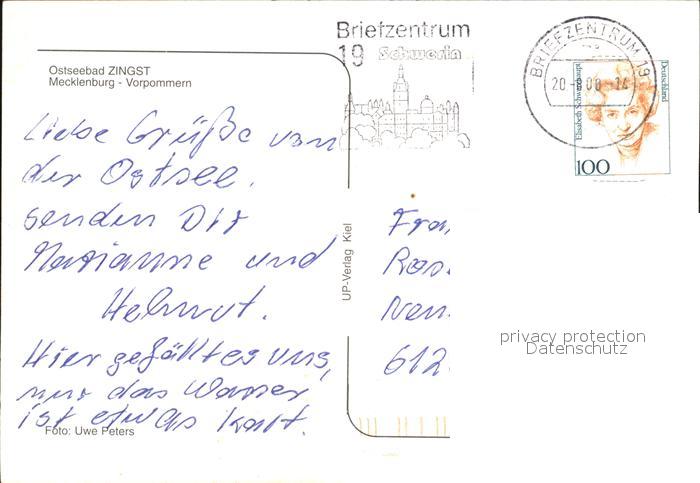 Ostseebad ZINGST
Mecklenburg - Vorpommern
Briefzentrum
19 Schwerin
BRIEFZENTRUM 19
20 -8.00 -14
Elisabeth Schwarzhaupt
Deutschland
100
Liebe Grüße von
der Ostsee.
senden Dir
Marianne und
Helmut.
Hier gefällt es uns,
nur das Wasser
ist etwas kalt.
Foto: Uwe Peters
UP-Verlag Kiel
Frau
Ros
Neu
612
privacy protection
Datenschutz